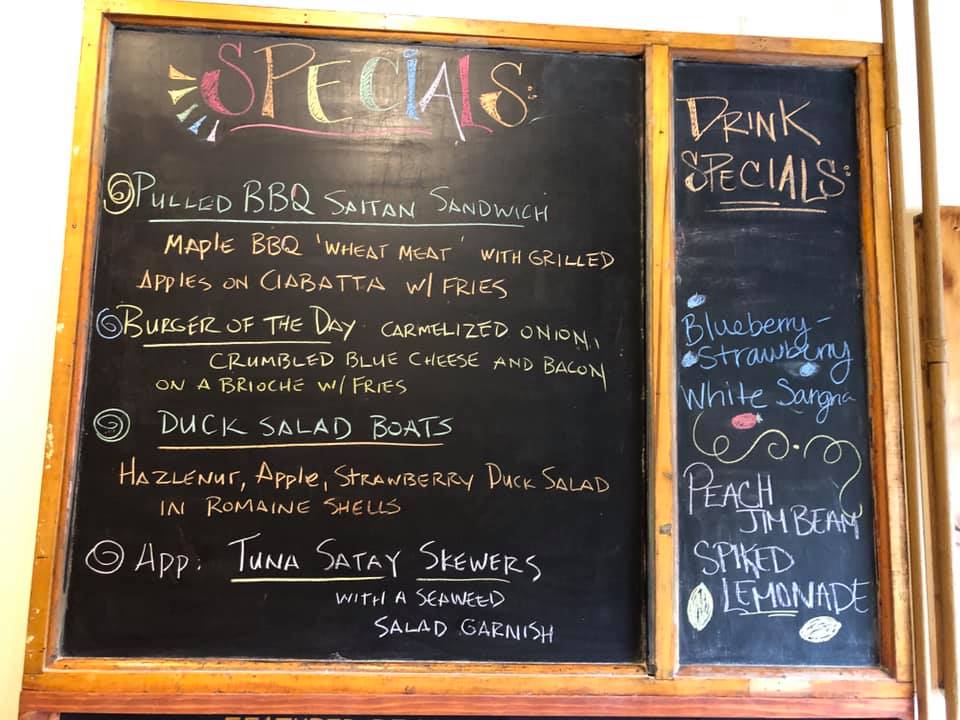 SPECIALS:
PULLED BBQ SAITAN SANDWICH
MAPLE BBQ 'WHEAT MEAT' WITH GRILLED
APPLES ON CIABATTA W/ FRIES
BURGER OF THE DAY CARMELIZED ONION,
CRUMBLED BLUE CHEESE AND BACON
ON A BRIOCHE W/ FRIES
DUCK SALAD BOATS
HAZLENUT, APPLE, STRAWBERRY DUCK SALAD
IN ROMAINE SHELLS
APP: TUNA SATAY SKEWERS
WITH A SEAWEED
SALAD GARNISH
DRINK
SPECIALS:
Blueberry-
Strawberry
White Sangria
PEACH
JIM BEAM
SPIKED
LEMONADE